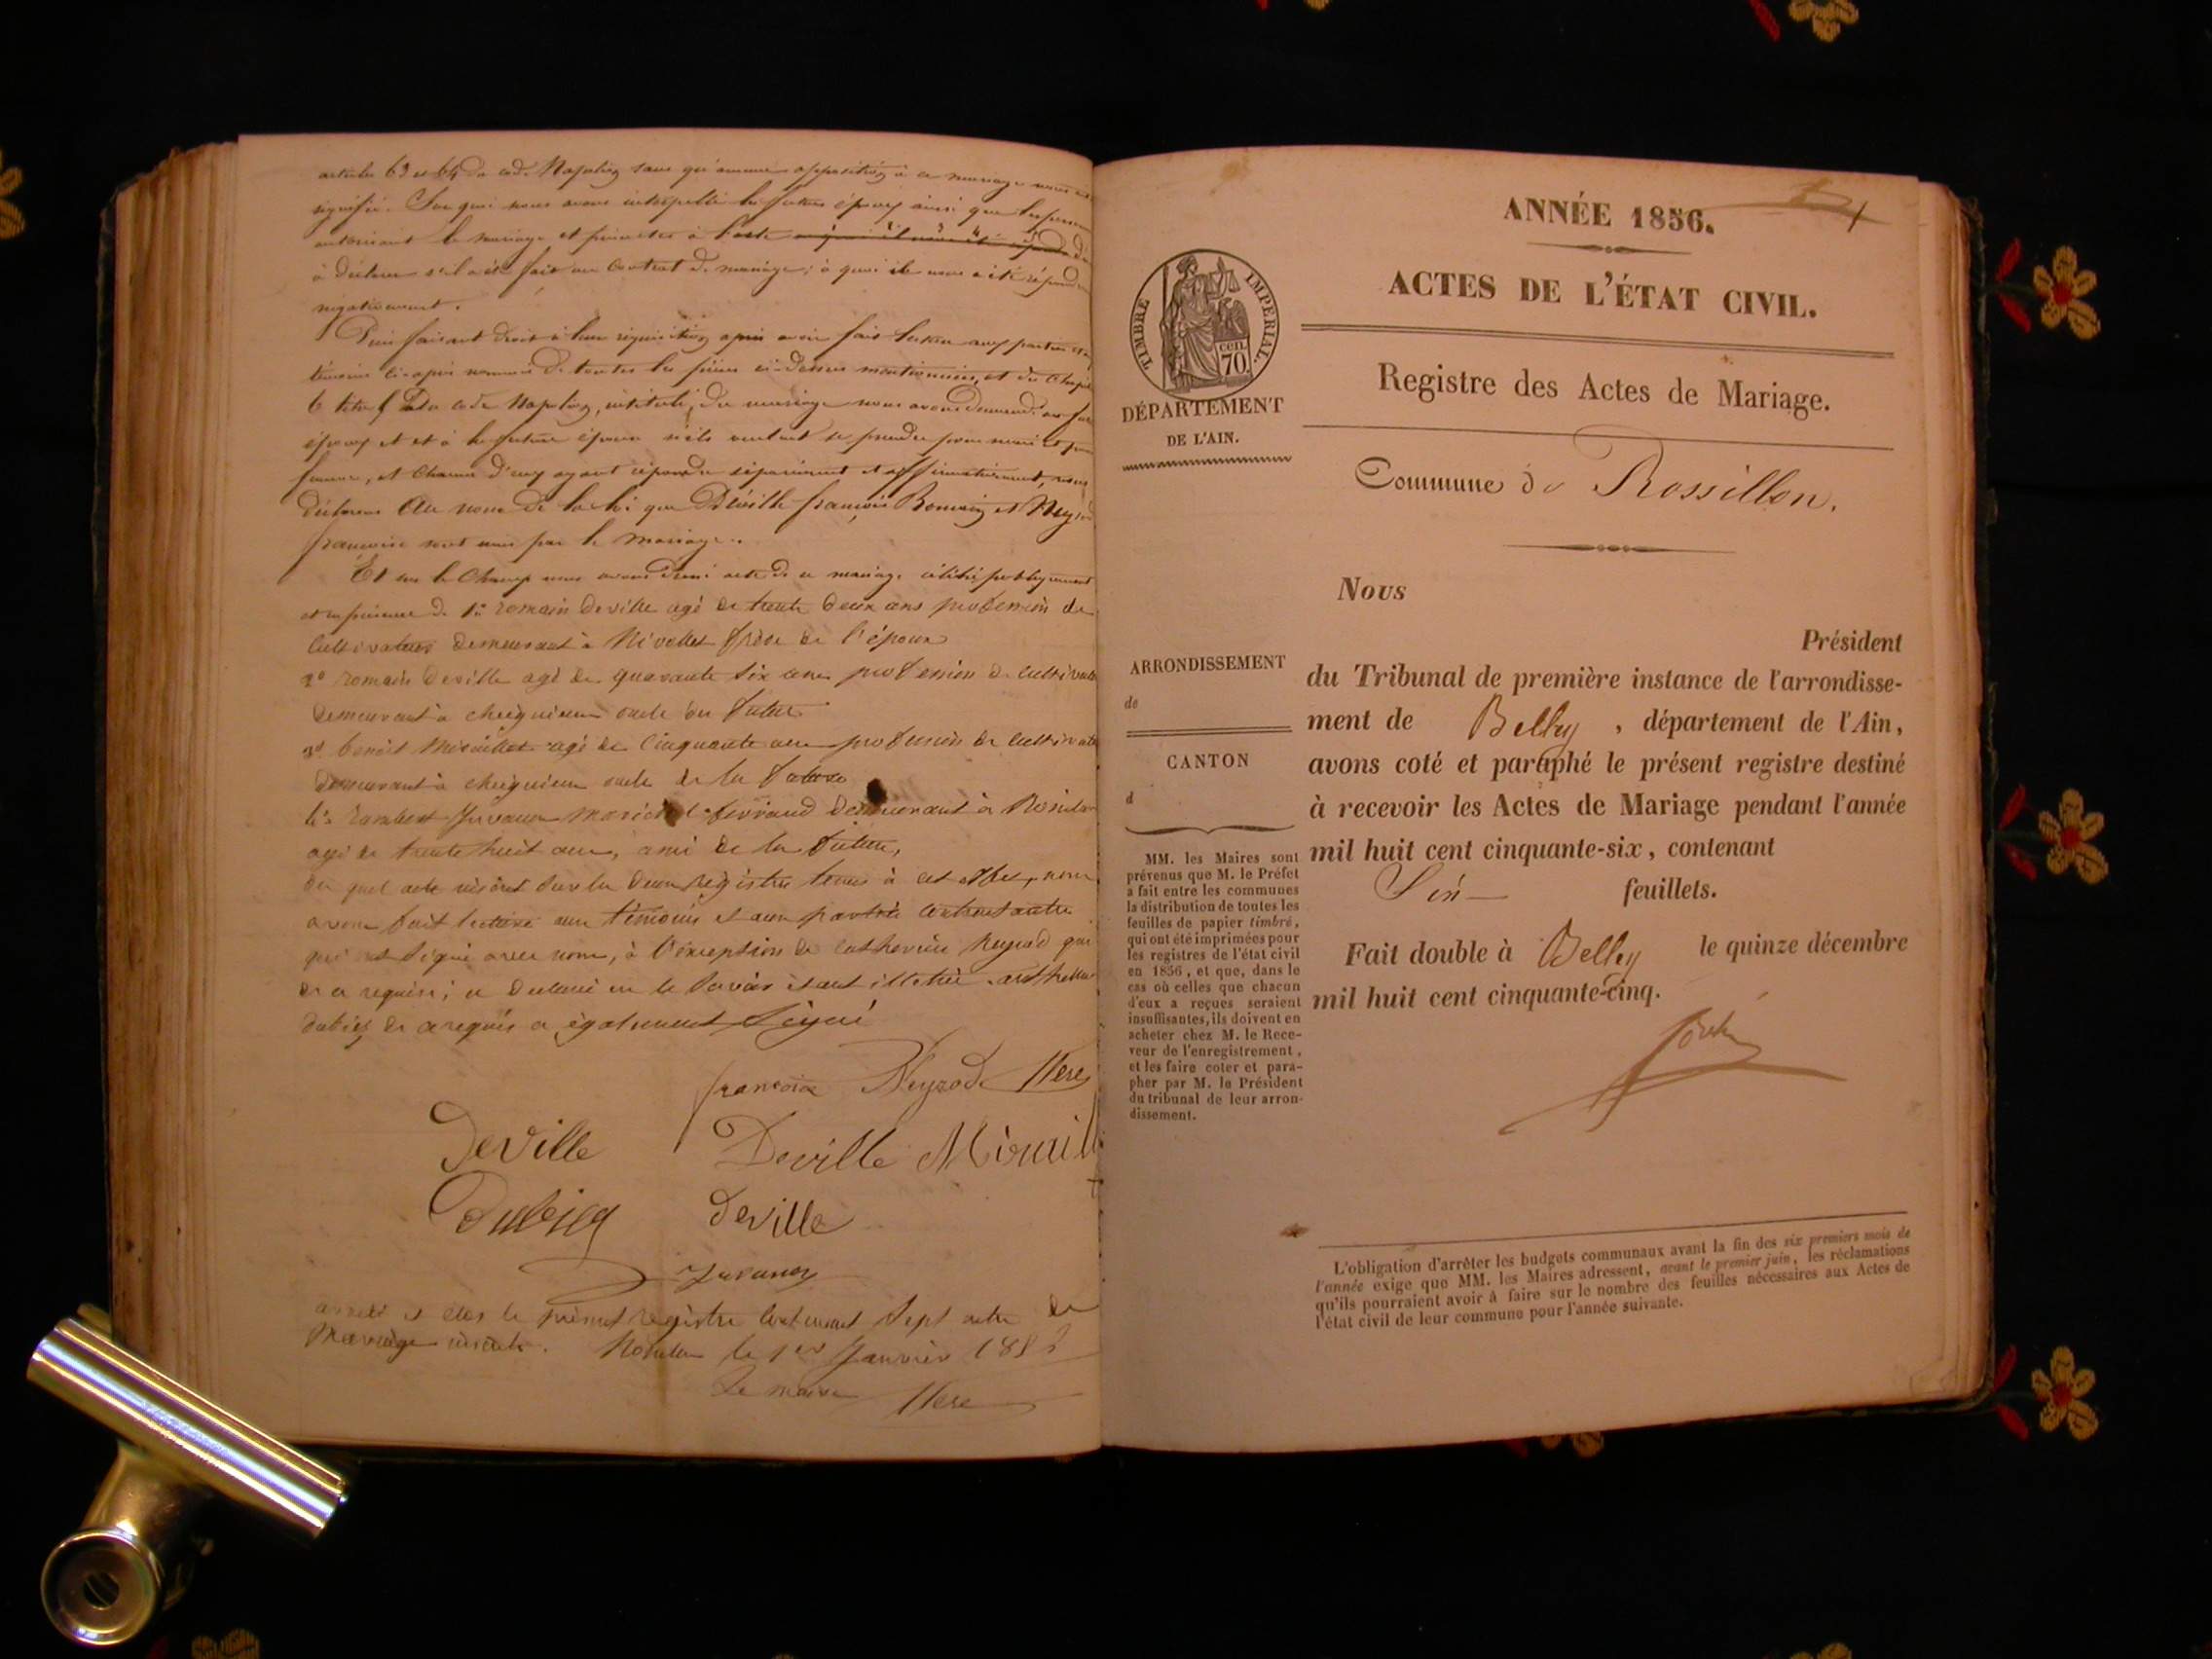 articles 63 et 64 du code Napoléon sans qu'aucune opposition à ce mariage nous ait
signifié. Sur quoi nous avons interpellé les futurs époux ainsi que les
autorisant le mariage et présentes à l'acte
à déclarer s'il a été fait un Contrat de mariage ; à quoi il nous a été répondu
négativement.
Puis faisant droit à leur réquisition après avoir fait lecture aux parties et
témoins ci-après nommés de toutes les pièces ci-dessus mentionnées, et du Chapitre
6 titre 5 Du code Napoléon, intitulé, du mariage nous avons demandé au futur
époux et et à la future épouse s'ils veulent se prendre pour mari et pour
femme, et Chacun d'eux ayant répondu séparément et affirmativement, nous
déclarons Au nom de la loi que Déville françois Romain et Neyrod
françoise sont unis par le mariage.
Et sur le Champ nous avons dressé acte de ce mariage célébré publiquement
et en présence de 1° romain deville agé de trente deux ans profession de
Cultivateur demeurant à Nivollet frère de l'époux
2° romain deville agé de quarante six ans profession de cultivateur
demeurant à cheignieu oncle du futur
3° benoit Miraillet agé de Cinquante ans profession de cultivateur
demeurant à cheignieu oncle de la future
4° rambert Juvanon Marichal ferrand demeurant à Rossillon
agé de trente huit ans, ami de la future,
du quel acte inscrit sur les deux registres tenus à cet effet, nous
avons fait lecture aux témoins et aux parties contractantes
qui ont signé avec nous, à l'exception de catherine Neyrod qui
de ce requise, a déclaré ne le savoir étant illettrée.
dubief de ce requis a également signé
francoise Neyrod
Deville Deville
Dubief deville
Juvanon
arreté et clos le présent registre Contenant Sept actes de
Mariage inscrits. Rossillon le 1er Janvier
Le maire
ANNÉE 1856.
1
ACTES DE L'ÉTAT CIVIL.
TIMBRE IMPERIAL.
CEN. 70.
DÉPARTEMENT
DE L'AIN.
Registre des Actes de Mariage.
Commune de Rossillon.
Nous
Président
du Tribunal de première instance de l'arrondisse-
ment de Belley , département de l'Ain,
avons coté et paraphé le présent registre destiné
à recevoir les Actes de Mariage pendant l'année
mil huit cent cinquante-six, contenant
Six feuillets.
Fait double à Belley le quinze décembre
mil huit cent cinquante-cinq.
ARRONDISSEMENT
de
CANTON
d
MM. les Maires sont
prévenus que M. le Préfet
a fait entre les communes
la distribution de toutes les
feuilles de papier timbré,
qui ont été imprimées pour
les registres de l'état civil
en 1856, et que, dans le
cas où celles que chacun
d'eux a reçues seraient
insuffisantes, ils doivent en
acheter chez M. le Rece-
veur de l'enregistrement,
et les faire coter et para-
pher par M. le Président
du tribunal de leur arron-
dissement.
L'obligation d'arrêter les budgets communaux avant la fin des six premiers mois de
l'année exige que MM. les Maires adressent, avant le premier juin, les réclamations
qu'ils pourraient avoir à faire sur le nombre des feuilles nécessaires aux Actes de
l'état civil de leur commune pour l'année suivante.